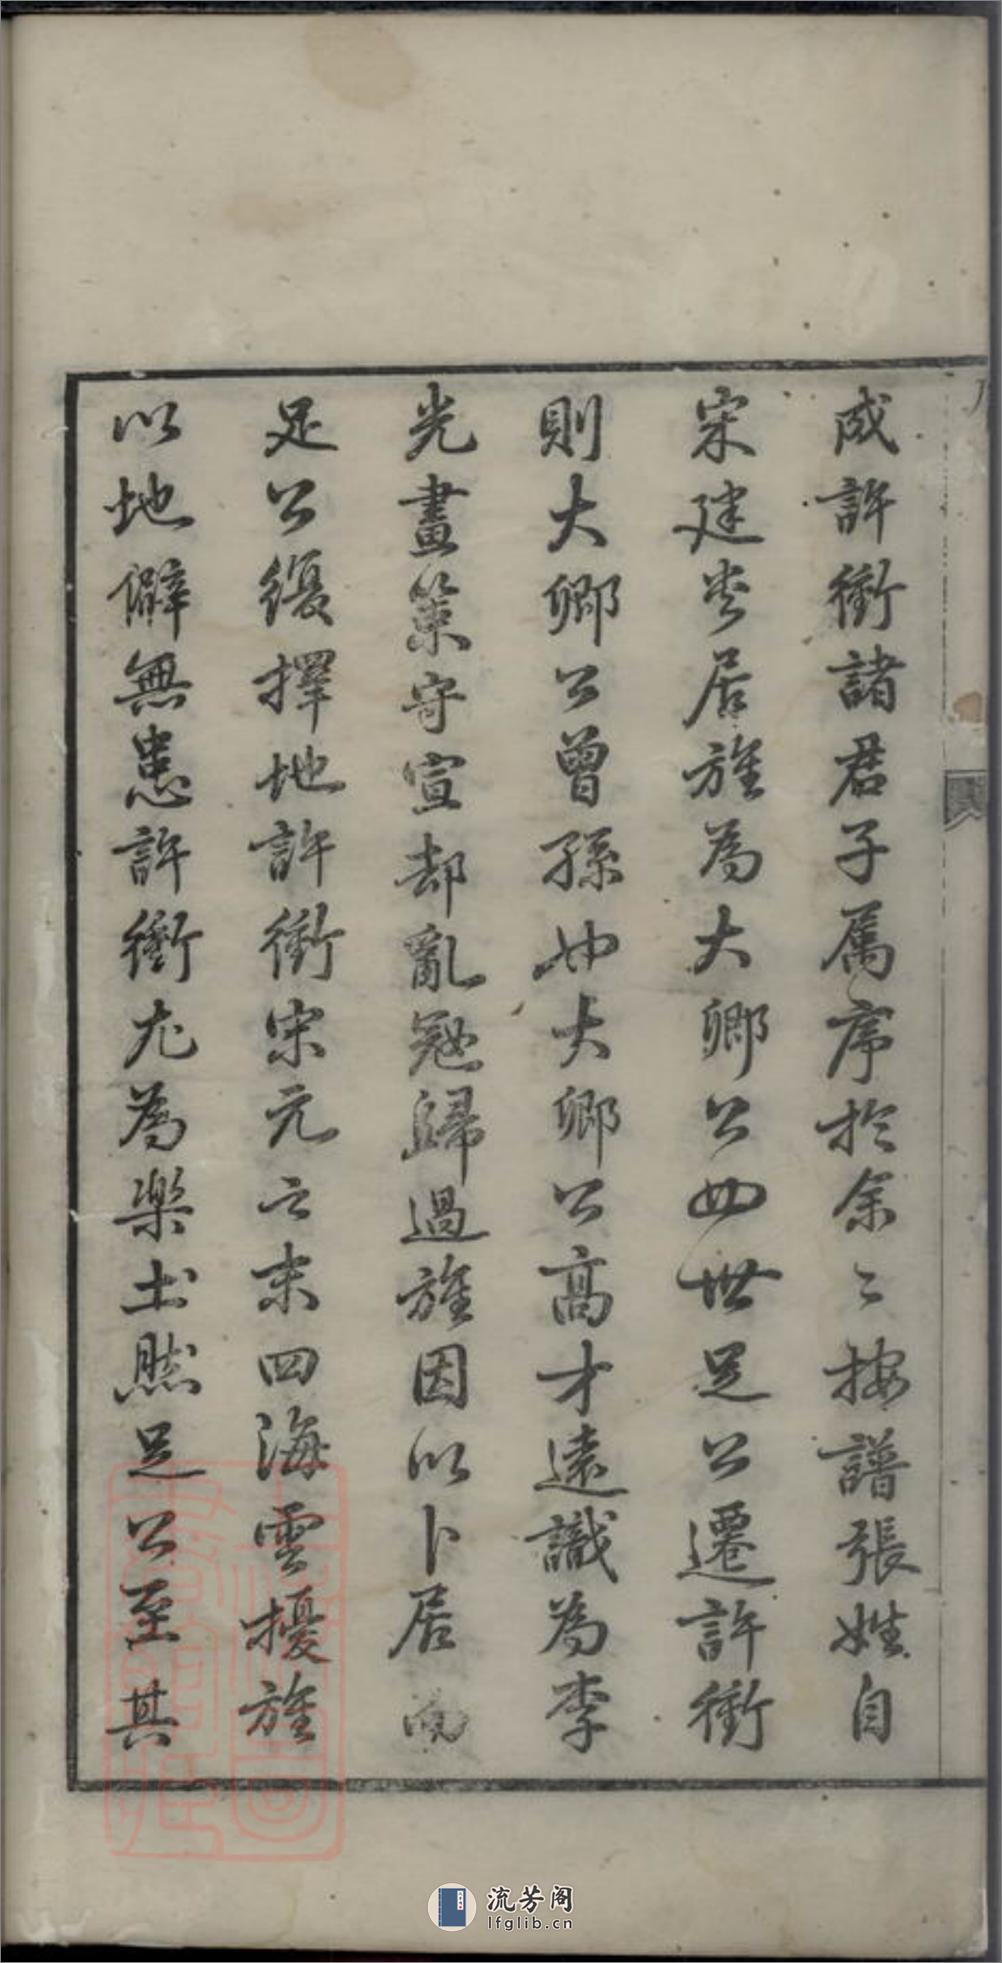 成許衝諸君子属序於余〻按譜張姓自
宋建炎居旌為大卿公四世足公遷許衝
則大卿公曾孫也大卿公高才遠識為李
光畫策守宣却亂寇歸過旌因以卜居而
足公復擇地許衝宋元之末四海雲擾旌
以地僻無患許衝尤為樂土然足公至其
流芳阁
lfglib.cn